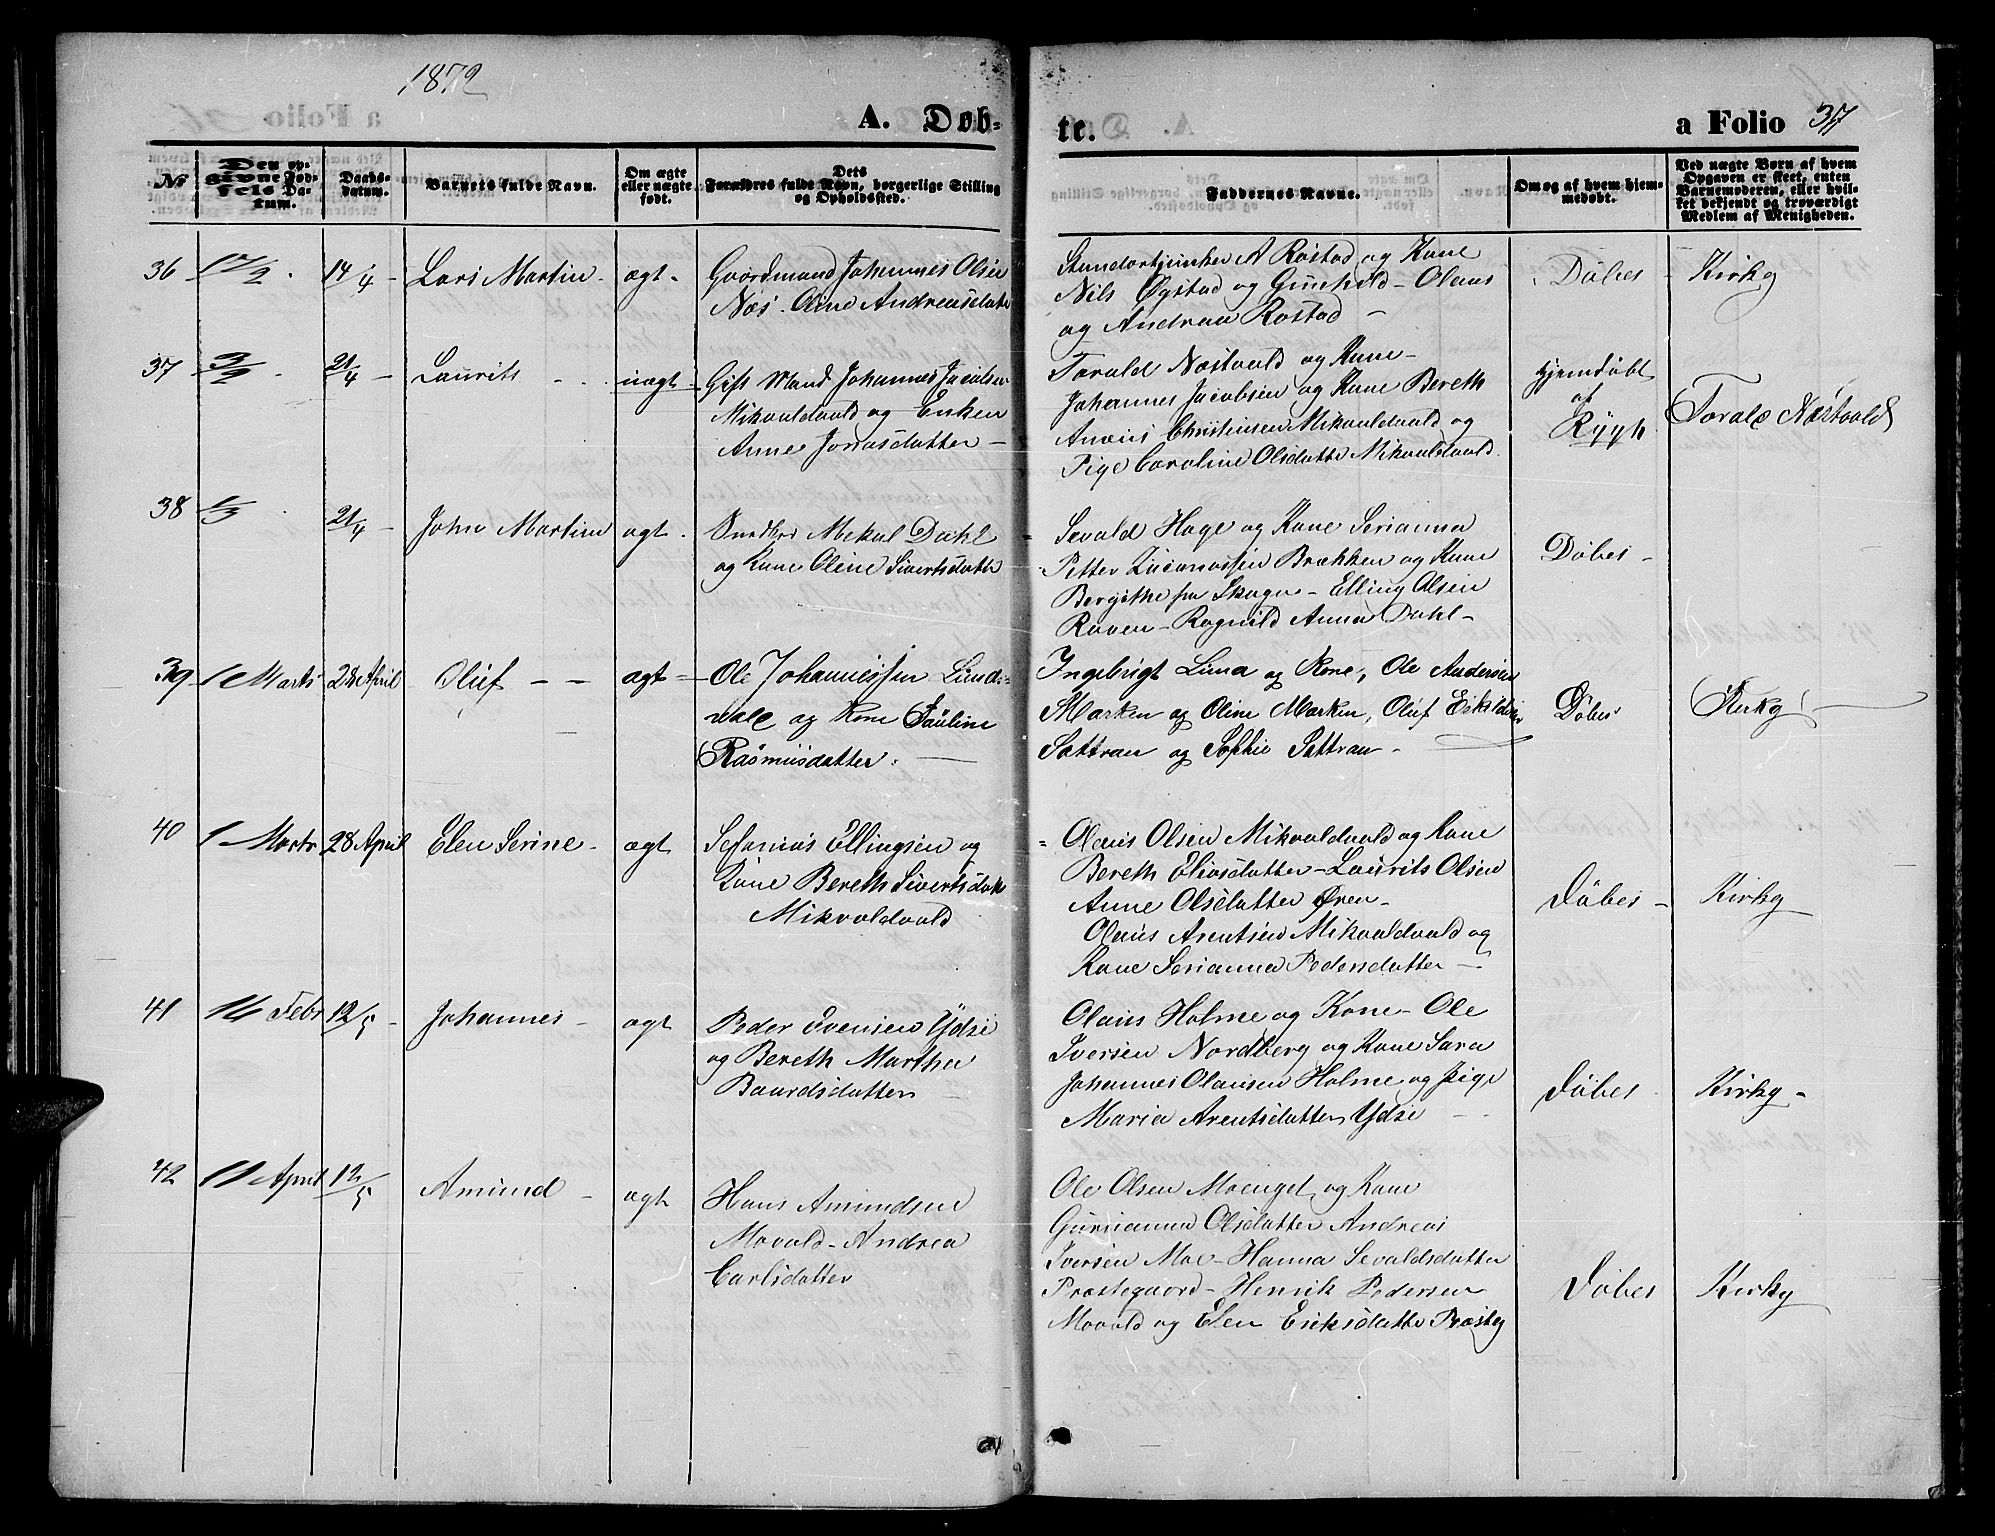 1872
A. Døb-
te.
a Folio 37
No
Den op-
givne Fød-
sels Da-
tum.
Daabs-
datum.
Barnets fulde Navn.
Om ægte
eller uægte
født.
Dets
Forældres fulde Navn, borgerlige Stilling
og Opholdssted.
Faddernes Navne.
Om og af hvem hjem-
medøbt.
Ved uægte Børn af hvem
Opgaven er skeet, enten
Barnemoderen, eller hvil-
ket bekjendt og troværdigt
Medlem af Menigheden.
36 17/2 14/4 - Lars Martin - ægt -
Gaardmand Johannes Olsen
Næs. Oline Andreasdatte
Standartjunker A Rostad og Kane
Nils Øgstad og Gunhild - Olaus
og Andrea Rostad -
Döbes - Kirkg
37 3/2 21/4 - Laurits - - uægt -
Gift Mand Johannes Jacobsen
Mikvoldvald og Enken
Anne Jonasdatter -
Torald Næstvold og Kane -
Johannes Jacobsen og Kane Bereth
Anæus Christensen Mikvoldvald og
Pige Caroline Olsdatte Mikvoldvald.
Hjemdöbt
af
Rygh
Torald Næstvald
38 1/3 21/4 - John Martin ægt.
Mekal Dahl
og Kane Oline Sivertsdatte
Sevald Hage og Kane Serianna
Petter Zacariassen Brækken og Kane
Bergithe fra Skogn - Elling Olsen
Raven - Ragnild Anna Dahl -
Döbes -
39 1 Marts 28 April Oluf - - ægt -
Ole Johannessen Lund-
vald og Kone Pauline
Rasmusdatter. -
Ingebrigt Lima og Kone, Ole Andersen
Marken og Oline Marken, Oluf
Sættran og Sophie Sættran -
Döbes Kirkg
40 1 Marts 28 April Elen Serine - ægt
Sefanias Ellingsen og
Kone Bereth Sivertsdatte
Mikvoldvald
Olaus Olsen Mikvoldvald og Kane
Bereth Eliasdatter - Laurits Olsen
Anne Olsdatter Øren -
Olaus Arentsen Mikvoldvald og
Kane Serianna Pedersdatter -
Döbes - Kirkg
41 14 Febr 12/5 - Johannes - ægt
Peder Svensen Ydse
og Bereth Martha
Baardsdatter
Olaus Holme og Kone - Ole
Iversen Nordberg og Kane Sara
Johannes Olausen Holme og Pige
Maria Arentsdatter Ydse -
Döbes Kirkg -
42 11 April 12/5 Amund - ægt
Hans Amundsen
Movald - Andrea
Carlsdatter
Ole Olsen Moenget og Kane
Gurianna Olsdatter Andreas
Iversen Moe - Hanna Sevaldsdatter
Præstegaard - Henrik Pedersen
Movald og Elen Eriksdatte Præsteg
Döbes Kirkg